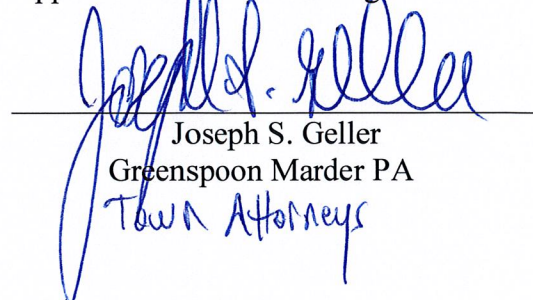 Joseph S. Geller
Joseph S. Geller
Greenspoon Marder PA
Town Attorneys